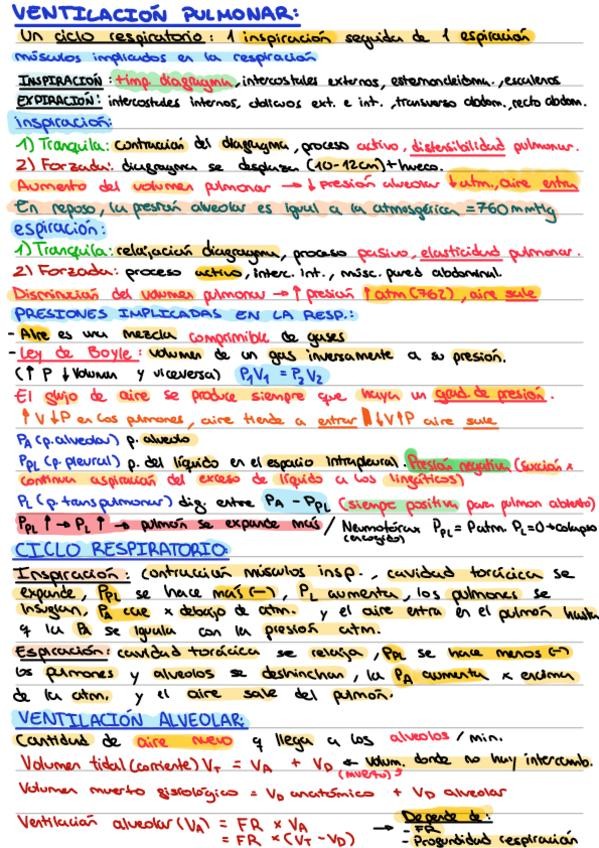 VENTILACIÓN PULMONAR:
Un ciclo respiratorio: 1 inspiración seguida de 1 espiración
músculos implicados en la respiración
INSPIRACIÓN: +imp. diagragma, intercostales externos, esternocleidom., escalenos
EXPIRACIÓN: intercostales internos, oblicuos ext. e int., transverso abdom., recto abdom.
inspiración:
1) Tranquila: contracción del diagragma, proceso activo, distensibilidad pulmonar.
2) Forzada: diagragma se desplaza (10-12cm) + hueco.
Aumento del volumen pulmonar → ↓ presión alveolar ↓ atm., aire entra
En reposo, la presión alveolar es igual a la atmosgérica = 760 mmHg
espiración:
1) Tranquila: relajación diagragma, proceso pasivo, elasticidad pulmonar.
2) Forzada: proceso activo, interc. int., músc. pared abdominal.
Disminución del volumen pulmonar → ↑ presión ↑ atm (762), aire sale
PRESIONES IMPLICADAS EN LA RESP.:
- Aire es una mezcla comprimible de gases
- Ley de Boyle: volumen de un gas inversamente a su presión.
(↑ P ↓ Volumen y viceversa) P₁V₁ = P₂V₂
El glujo de aire se produce siempre que haya un grad. de presión.
↑V↓P en los pulmones, aire tiende a entrar ↓V↑P aire sale
PA (p. alveolar) p. alveolo
PPL (p. pleural) p. del líquido en el espacio intrapleural. Presión negativa (succión x
continua aspiración del exceso de líquido a los lingáticos)
PL (p. transpulmonar) dig. entre PA - PPL (siempre positiva para pulmon abierto)
PPL ↑ → PL ↑ → pulmón se expande más / Neumotórax PPL = Patm PL = 0 → colapso
(encogido)
CICLO RESPIRATORIO:
Inspiración: contracción músculos insp., cavidad torácica se
expande, PPL se hace más (-), PL aumenta, los pulmones se
insuglan, PA cae x debajo de atm. y el aire entra en el pulmón hasta
q la PA se iguala con la presión atm.
Espiración: cavidad torácica se relaja, PPL se hace menos (-)
los pulmones y alveolos se deshinchan, la PA aumenta x encima
de la atm. y el aire sale del pulmón.
VENTILACIÓN ALVEOLAR:
Cantidad de aire nuevo q llega a los alveolos / min.
Volumen tidal (corriente) VT = VA + VD ← volum. donde no hay intercamb.
(muerto)
Volumen muerto gisiológico = VD anatómico + VD alveolar
Ventilación alveolar (VA) = FR × VA → Depende de:
= FR × (VT - VD) - FR
- Profundidad respiración